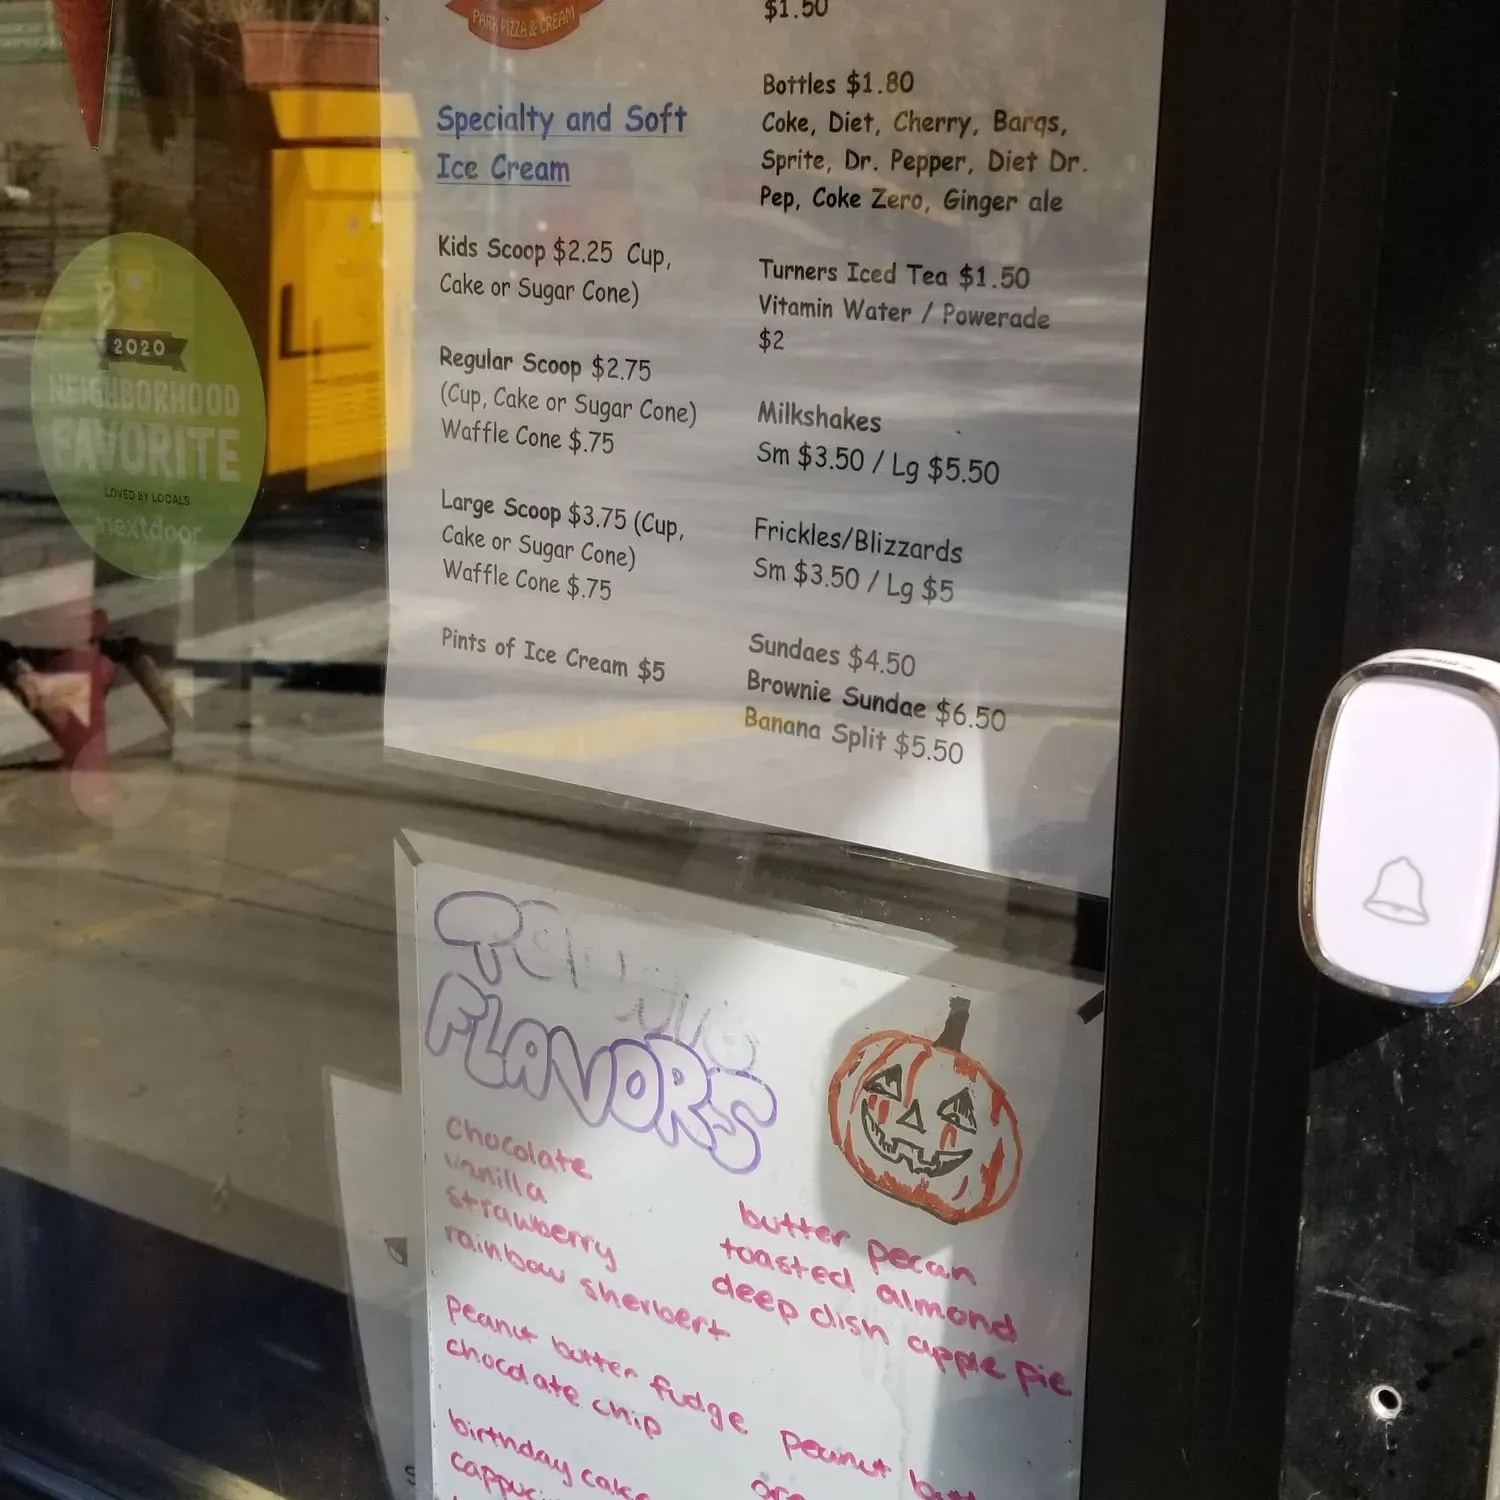 PARK PIZZA & CREAM
Specialty and Soft
Ice Cream
Kids Scoop $2.25 Cup,
Cake or Sugar Cone)
Regular Scoop $2.75
(Cup, Cake or Sugar Cone)
Waffle Cone $.75
Large Scoop $3.75 (Cup,
Cake or Sugar Cone)
Waffle Cone $.75
Pints of Ice Cream $5
$1.50
Bottles $1.80
Coke, Diet, Cherry, Barqs,
Sprite, Dr. Pepper, Diet Dr.
Pep, Coke Zero, Ginger ale
Turners Iced Tea $1.50
Vitamin Water / Powerade
$2
Milkshakes
Sm $3.50 / Lg $5.50
Frickles/Blizzards
Sm $3.50 / Lg $5
Sundaes $4.50
Brownie Sundae $6.50
Banana Split $5.50
2020
NEIGHBORHOOD
FAVORITE
LOVED BY LOCALS
nextdoor
FLAVORS
chocolate
vanilla
strawberry
rainbow sherbert
peanut butter fudge
chocolate chip
birthday cake
butter pecan
toasted almond
deep dish apple pie
peanut